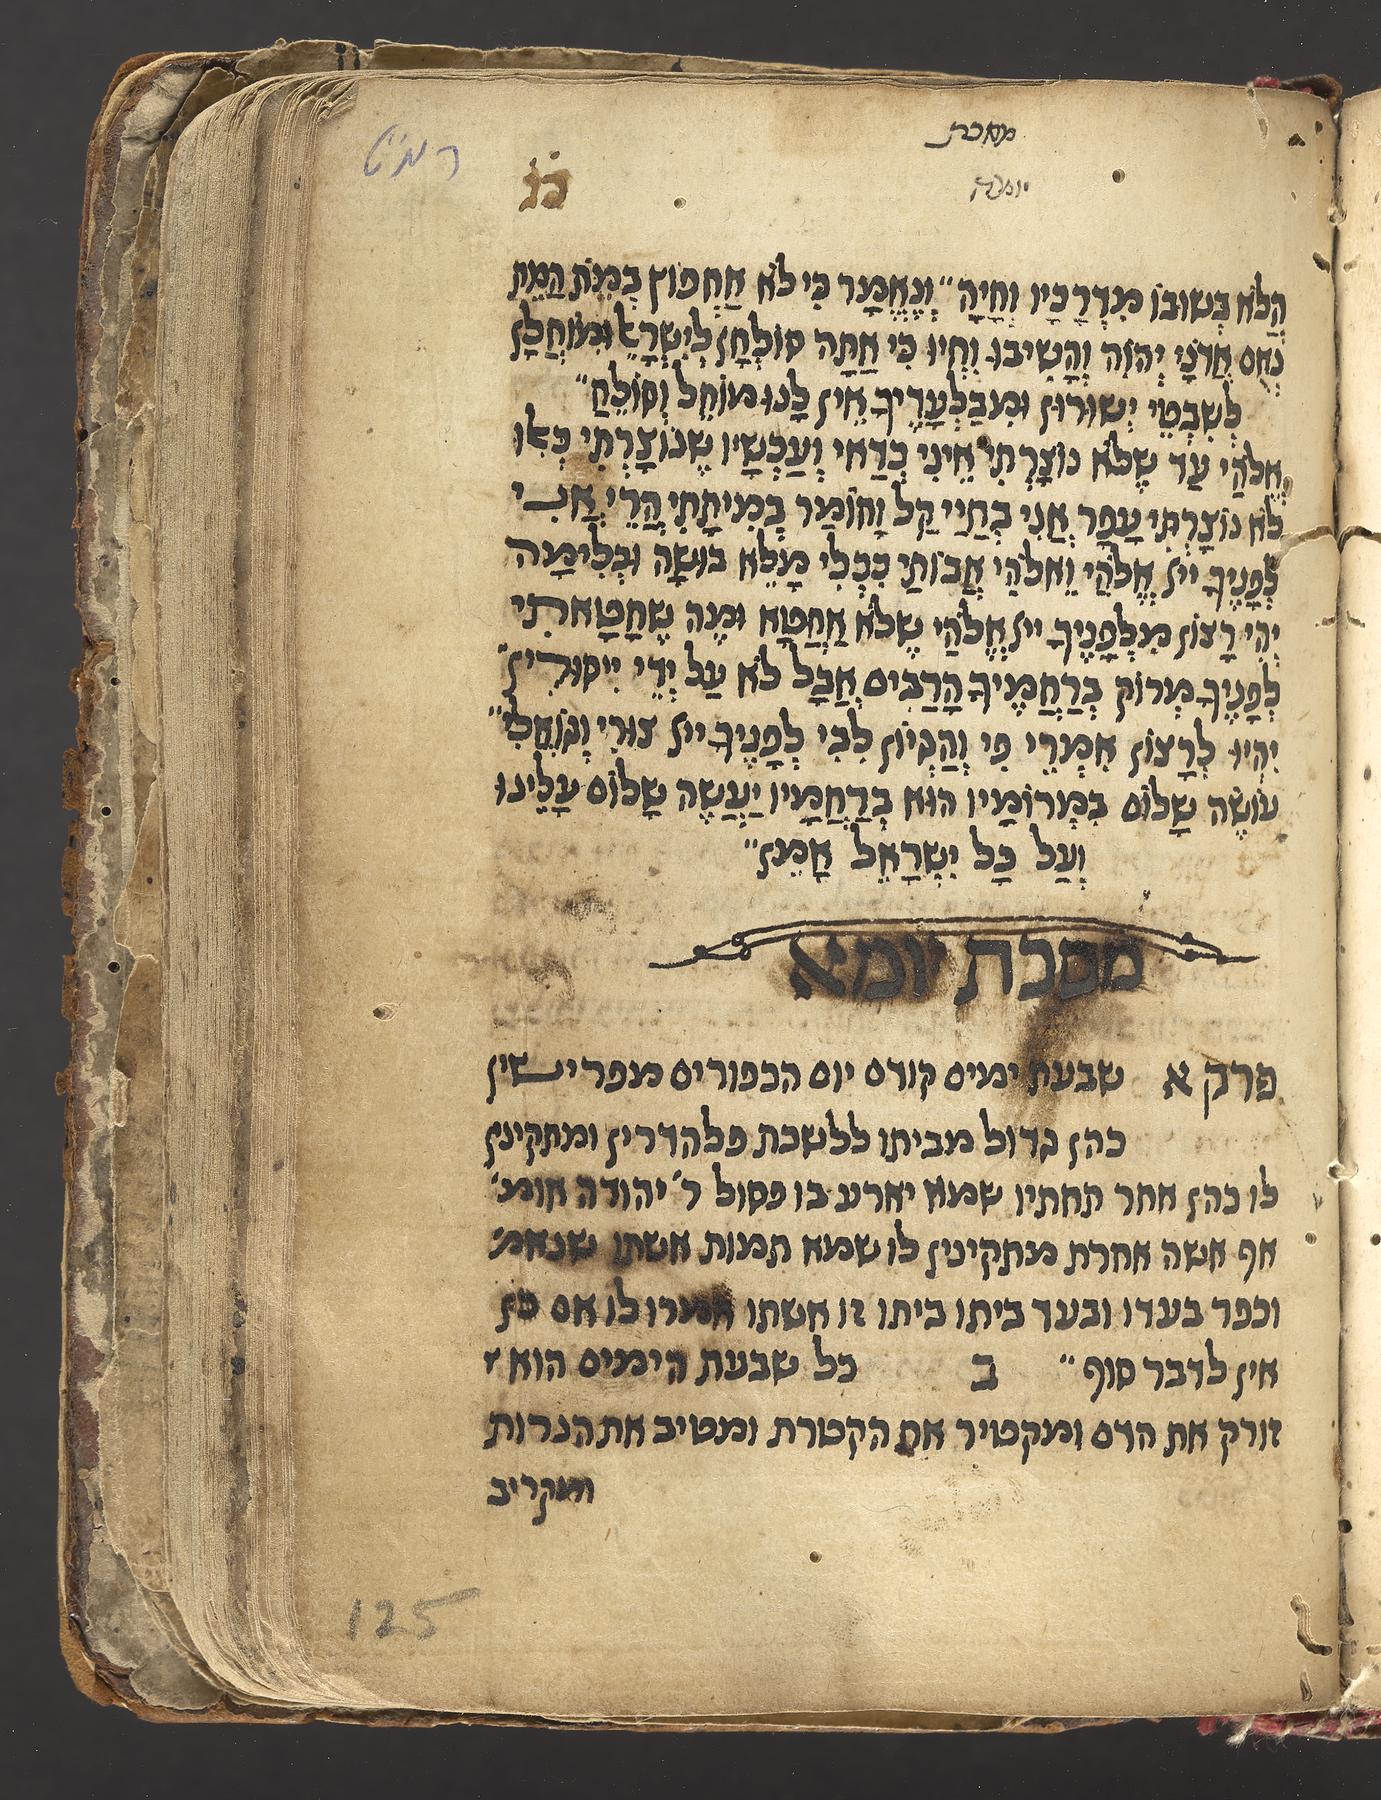 מסכת
יומא
רמ״ט
הֲלֹא בְּשׁוּבוֹ מִדְּרָכָיו וְחָיָה״ וְנֶאֱמַר כִּי לֹא אֶחְפּוֹץ בְּמוֹת הַמֵּת
נְאֻם אֲדֹנָי יְהֹוִה וְהָשִׁיבוּ וִחְיוּ כִּי אַתָּה סוֹלְחָן לְיִשְׂרָאֵל וּמוֹחֲלָן
לְשִׁבְטֵי יְשׁוּרוּן וּמִבַּלְעָדֶיךָ אֵין לָנוּ מוֹחֵל וְסוֹלֵחַ״
אֱלֹהַי עַד שֶׁלֹּא נוֹצַרְתִּי אֵינִי כְדַאי וְעַכְשָׁיו שֶׁנּוֹצַרְתִּי כְּאִלּוּ
לֹא נוֹצַרְתִּי עָפָר אֲנִי בְּחַיַּי קַל וָחוֹמֶר בְּמִיתָתִי הֲרֵי אֲנִי
לְפָנֶיךָ ייל אֱלֹהַי וֵאלֹהֵי אֲבוֹתַי כִּכְלִי מָלֵא בוּשָׁה וּכְלִימָה
יְהִי רָצוֹן מִלְּפָנֶיךָ ייל אֱלֹהַי שֶׁלֹּא אֶחֱטָא וּמֶה שֶׁחָטָאתִי
לְפָנֶיךָ מְרוֹק בְּרַחֲמֶיךָ הָרַבִּים אֲבָל לֹא עַל יְדֵי יִיסוּרִין״
יִהְיוּ לְרָצוֹן אִמְרֵי פִי וְהֶגְיוֹן לִבִּי לְפָנֶיךָ ייל צוּרִי וְגוֹאֲלִי״
עוֹשֶׂה שָׁלוֹם בִּמְרוֹמָיו הוּא בְּרַחֲמָיו יַעֲשֶׂה שָׁלוֹם עָלֵינוּ
וְעַל כָּל יִשְׂרָאֵל אָמֵן״
מסכת יומא
פרק א שבעת ימים קודם יום הכפורים מפרישין
כהן גדול מביתו ללשכת פלהדרין ומתקינין
לו כהן אחר תחתיו שמא יארע בו פסול ר׳ יהודה אומ׳
אף אשה אחרת מתקינין לו שמא תמות אשתו שנאמ׳
וכפר בעדו ובעד ביתו ביתו זו אשתו אמרו לו אם כן
אין לדבר סוף״ ב כל שבעת הימים הוא ז
זורק את הדם ומקטיר את הקטרת ומטיב את הנרות
ומקריב
125